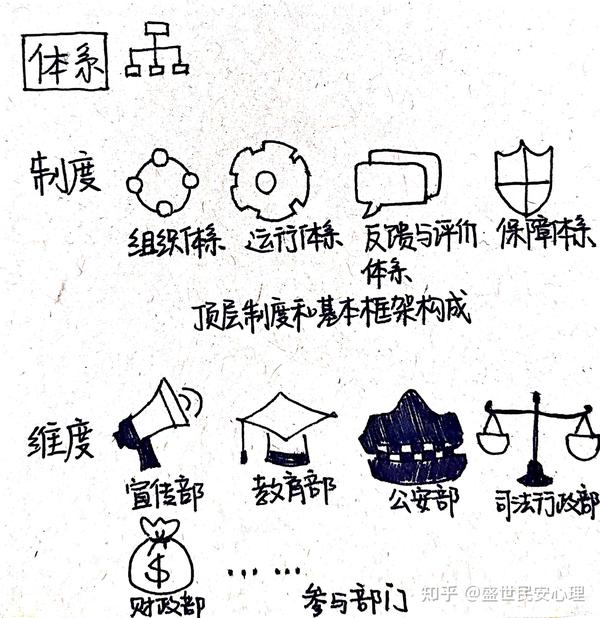 体系
制度
组织体系 运行体系 反馈与评价体系 保障体系
顶层制度和基本框架构成
维度
宣传部 教育部 公安部 司法行政部
$
财政部 …… 参与部门
知乎 @盛世民安心理